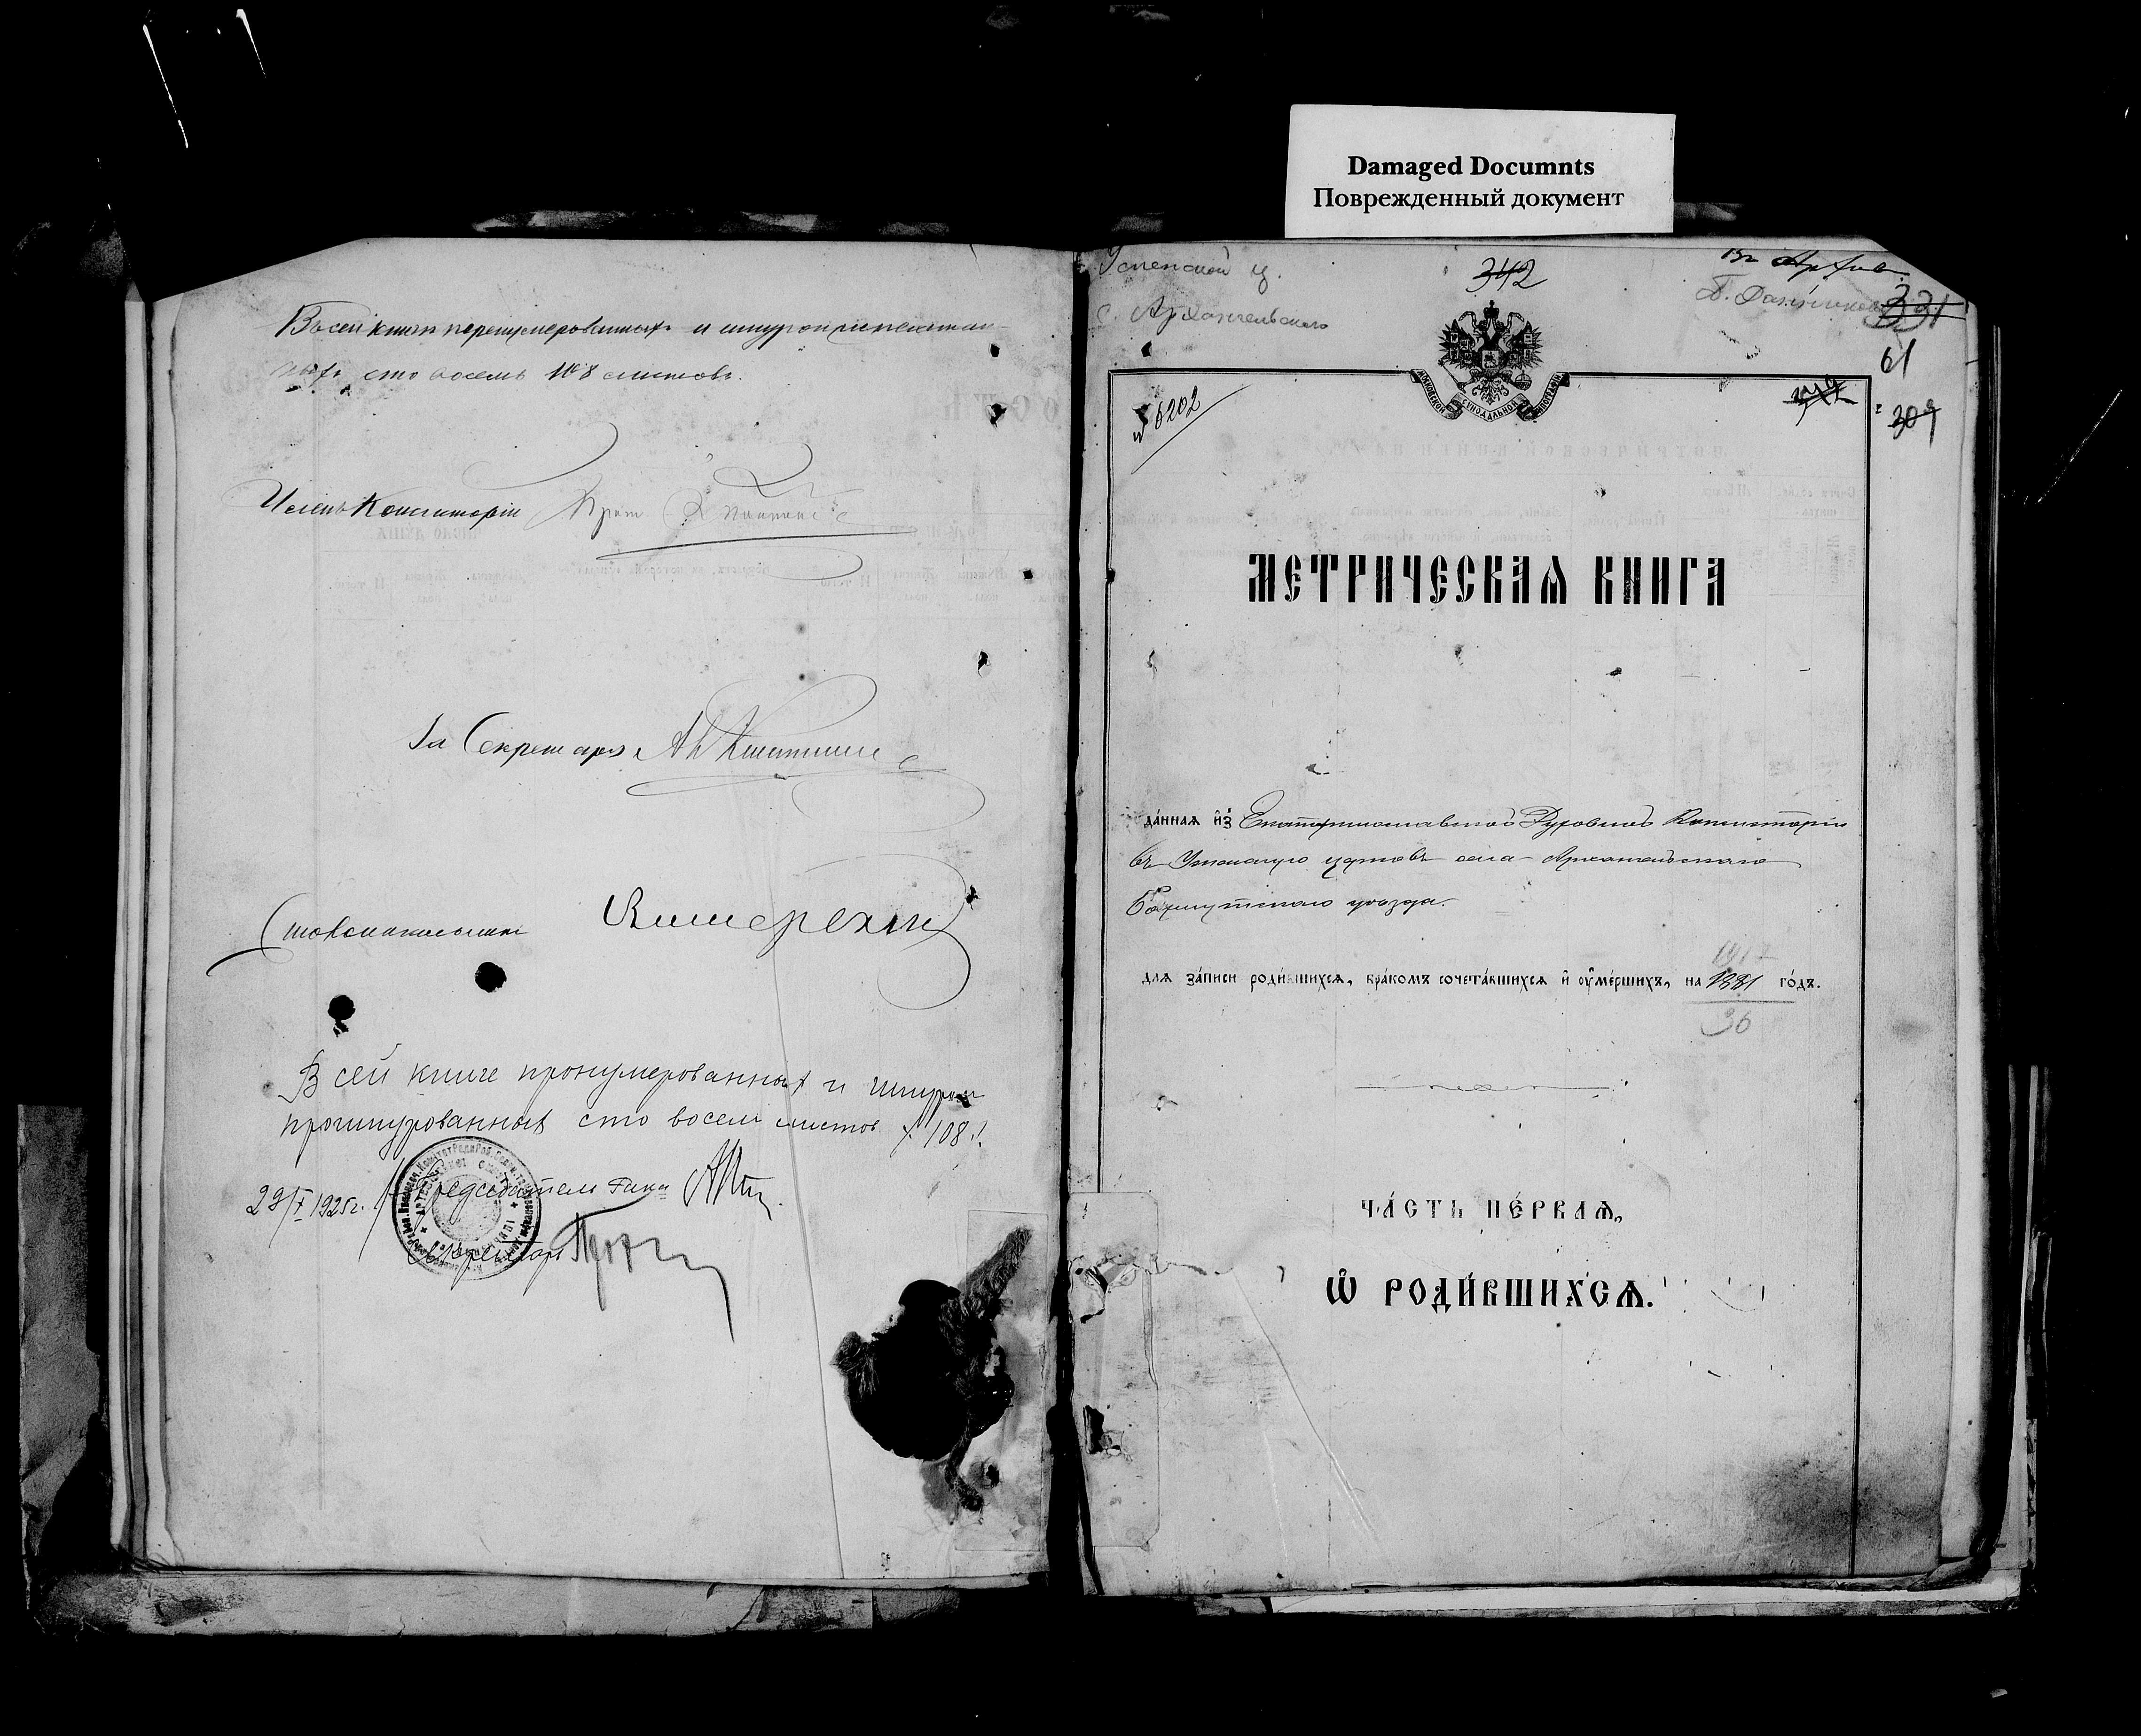 Damaged Documnts
Поврежденный документ
Въ сей книгѣ перенумерованныхъ и шнуромъ
сто восемь 108 листовъ.
Членъ Консисторіи
За Секретаря
Столоначальникъ
В сей книге пронумерованных и шнуром
прошнурованных сто восем листов /108/.
29/X 1925 г. Председатель
Секретарь
Успенской ц.
с. Архангельского
342
Въ Архив
331
61
309
МОСКОВСКОЙ СИНОДАЛЬНОЙ ТИПОГРАФІИ
№ 6202
МЕТРИЧЕСКАѦ КНИГА
да́ннаѧ и҆з̾ Екатеринославской Духовной Консисторіи
въ Успенскую церковь села Архангельскаго
Бахмутскаго уѣзда.
длѧ за́писи роди́вшихсѧ, бра́комъ сочета́вшихсѧ и҆ ᲂу҆ме́ршихъ, на 1881 го́дъ.
1917
36
ЧА́СТЬ ПЕ́РВАѦ,
Ѡ҆ РОДИ́ВШИХСѦ.